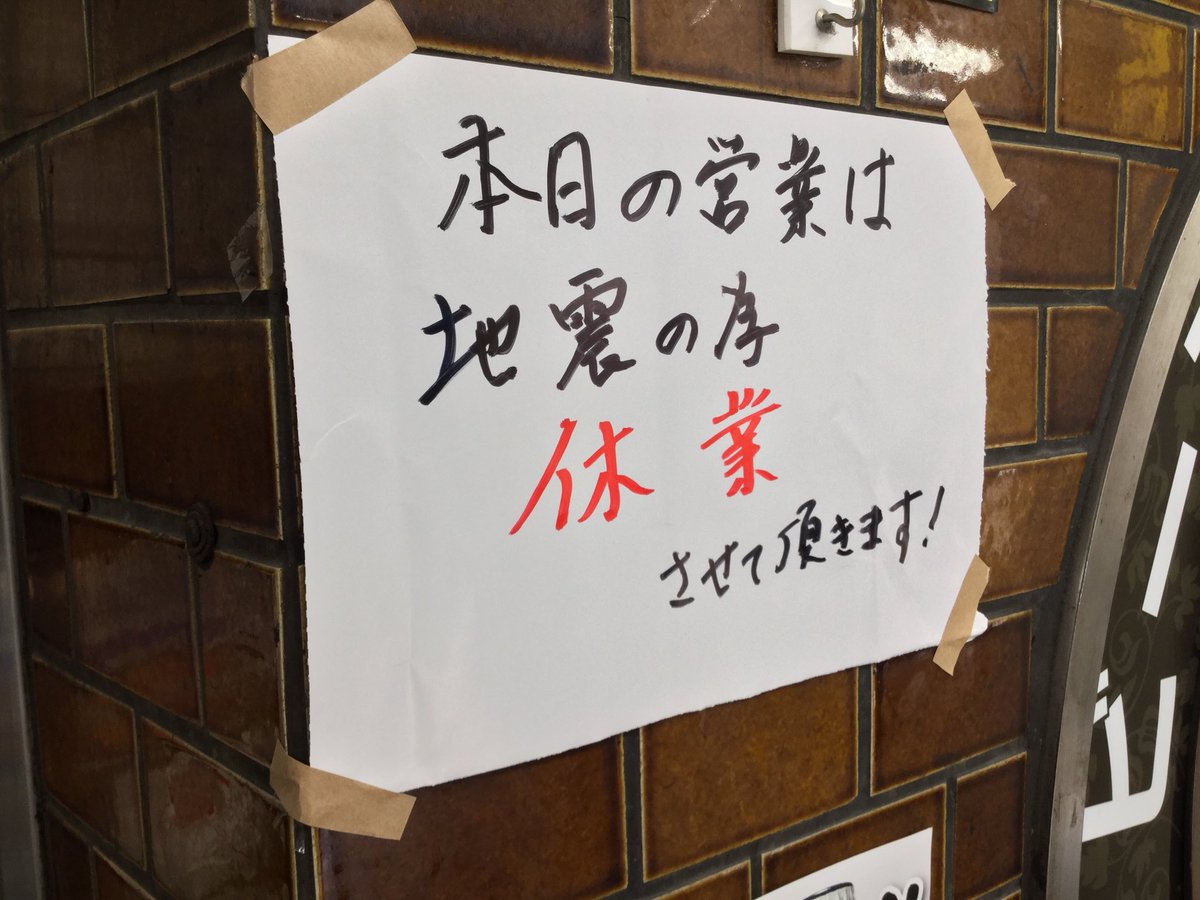 本日の営業は
地震の為
休業
させて頂きます!